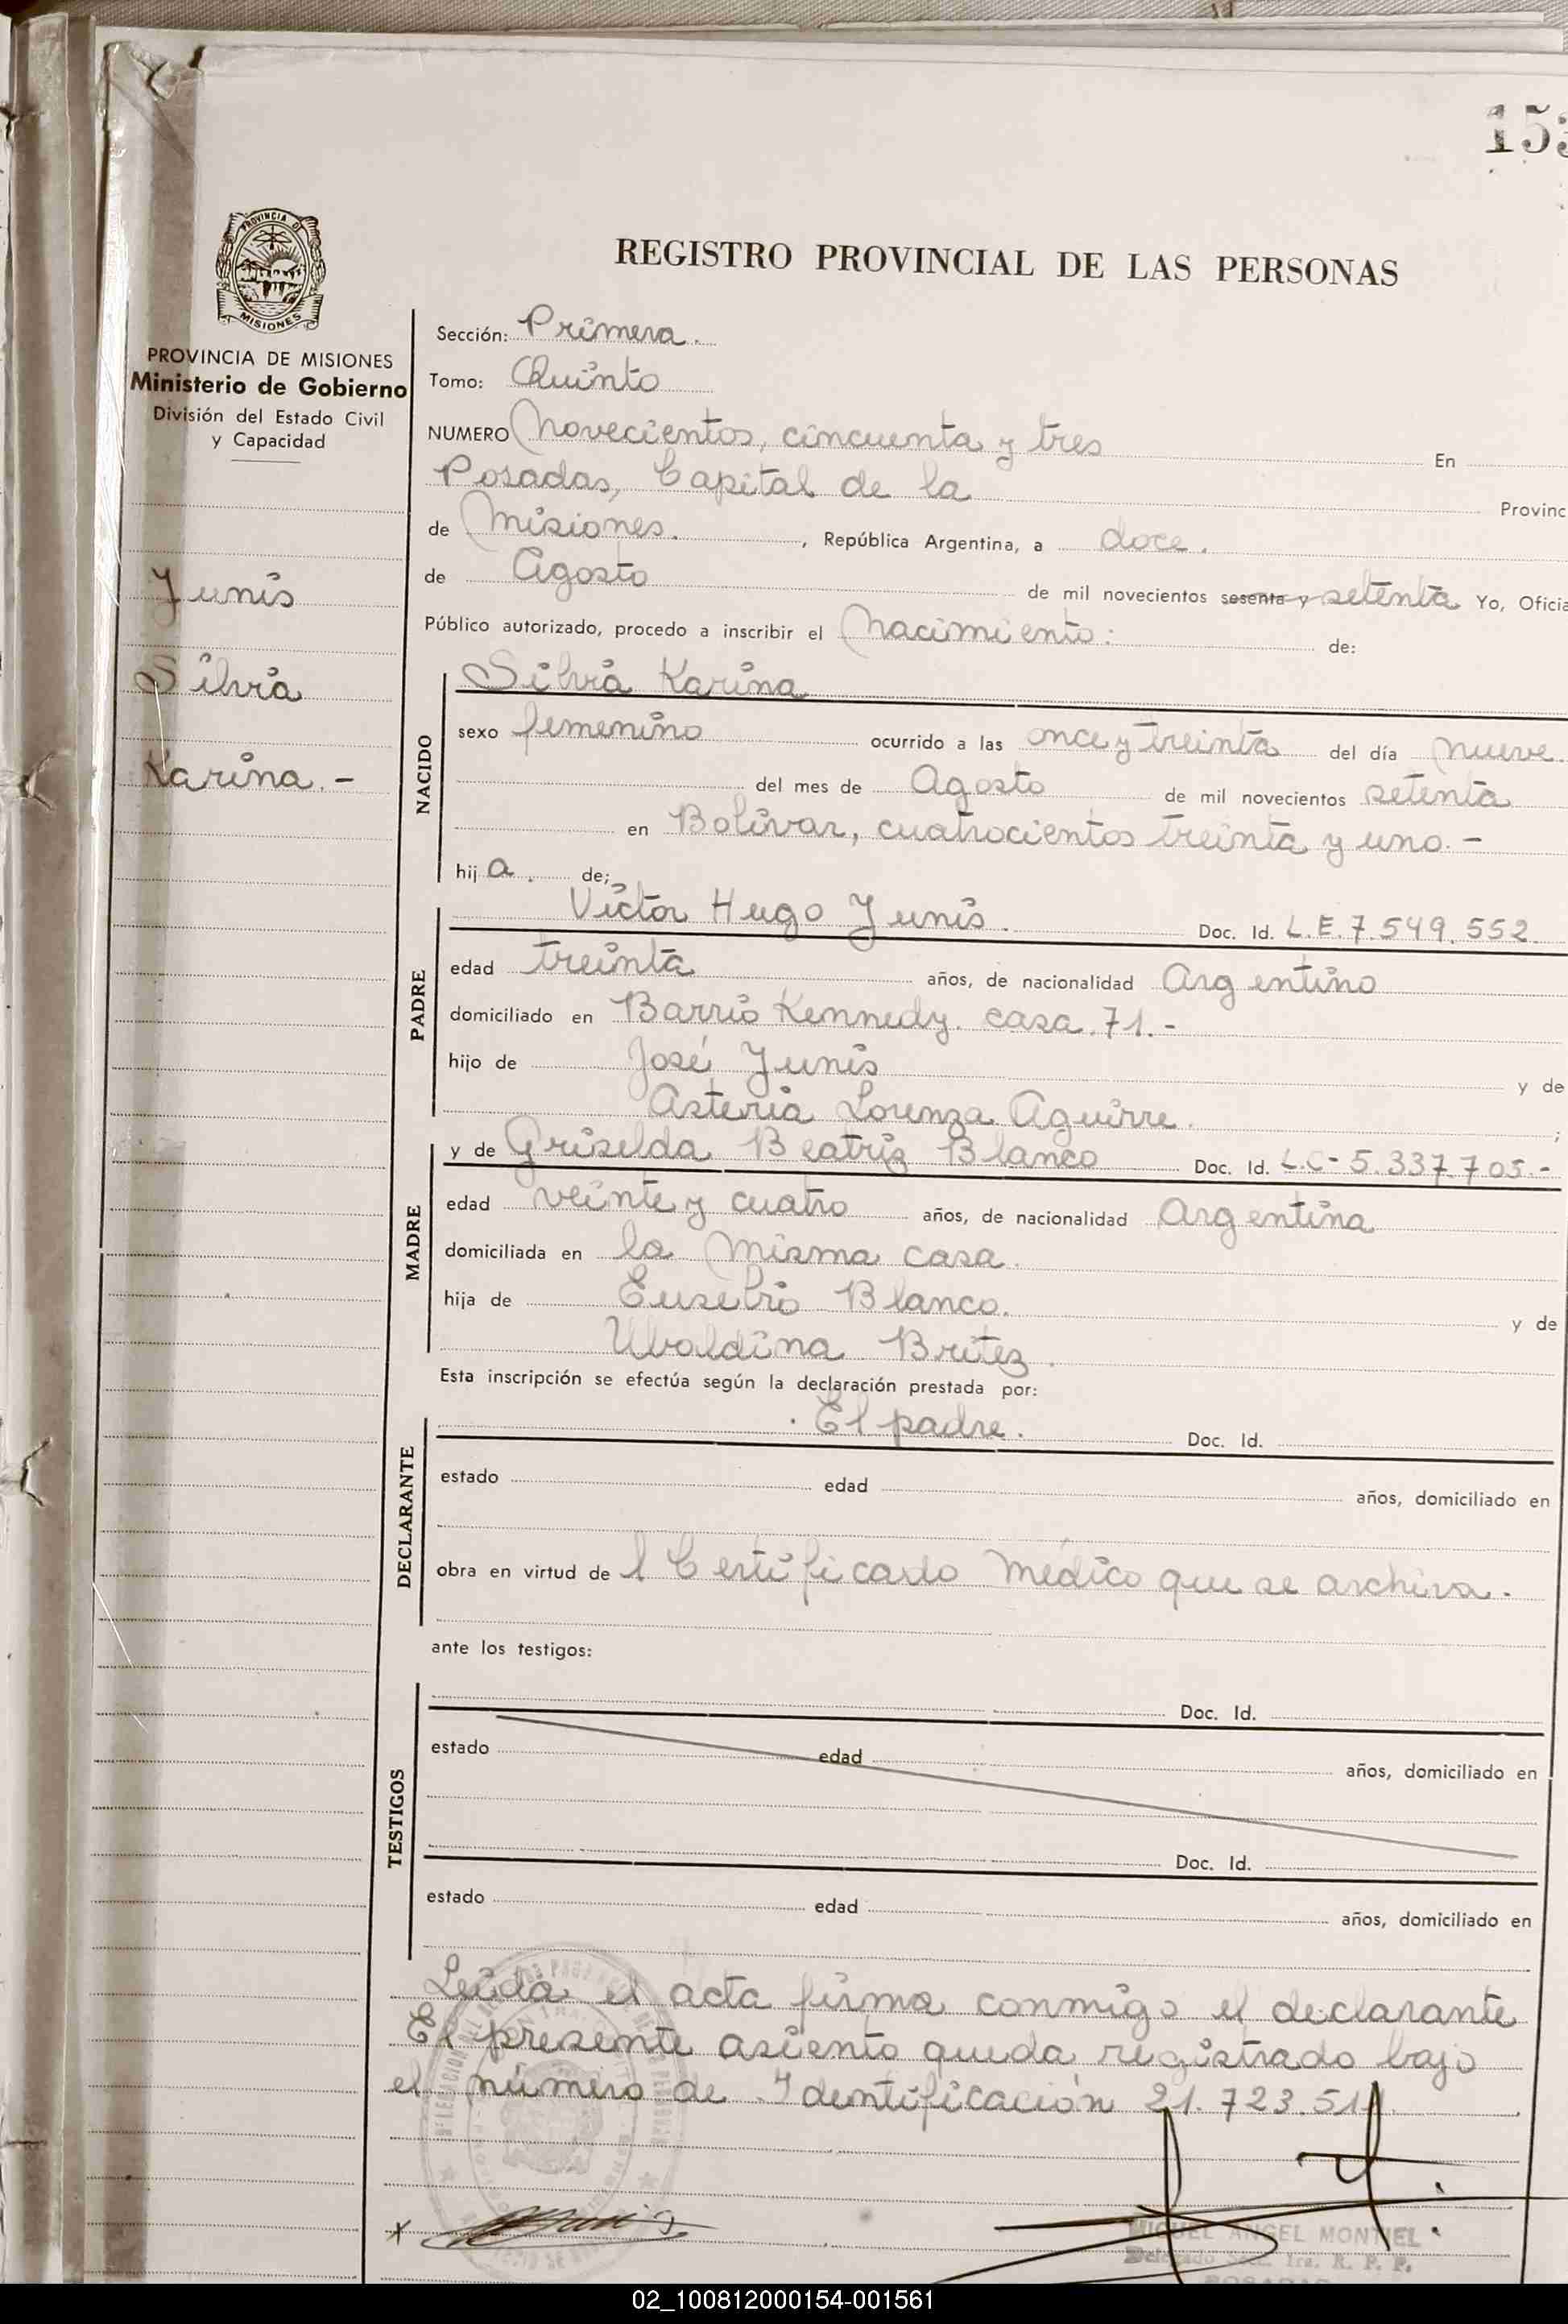 153
PROVINCIA DE
MISIONES
REGISTRO PROVINCIAL DE LAS PERSONAS
PROVINCIA DE MISIONES
Ministerio de Gobierno
División del Estado Civil
y Capacidad
Yunis
Silvia
Karina.-
Sección: Primera.
Tomo: Quinto
NUMERO Novecientos, cincuenta y tres En
Posadas, Capital de la Provinc
de Misiones. , República Argentina, a doce.
de Agosto de mil novecientos sesenta y setenta Yo, Oficia
Público autorizado, procedo a inscribir el Nacimiento: de:
NACIDO
Silvia Karina
sexo femenino ocurrido a las once y treinta del día nueve.
del mes de Agosto de mil novecientos setenta
en Bolívar, cuatrocientos treinta y uno.-
hij a. de;
PADRE
Víctor Hugo Yunis. Doc. Id. L.E.7.549.552
edad treinta años, de nacionalidad Argentino
domiciliado en Barrio Kennedy. casa.71.-
hijo de José Yunis y de
Asteria Lorenza Aguirre. ;
MADRE
y de Griselda Beatriz Blanco Doc. Id. L.C-5.337.705.-
edad veinte y cuatro años, de nacionalidad Argentina
domiciliada en la misma casa.
hija de Eusebio Blanco. y de
Ubaldina Britez.
Esta inscripción se efectúa según la declaración prestada por:
DECLARANTE
El padre. Doc. Id.
estado edad años, domiciliado en
obra en virtud de l Certificado Médico que se archiva.
ante los testigos:
TESTIGOS
Doc. Id.
estado edad años, domiciliado en
Doc. Id.
estado edad años, domiciliado en
Leída el acta firma conmigo el declarante
El presente asiento queda registrado bajo
el número de Identificación 21.723.511.
MIGUEL ANGEL MONTIEL
Delegado Secc. 1ra. R. P. P.
POSADAS
02_100812000154-001561